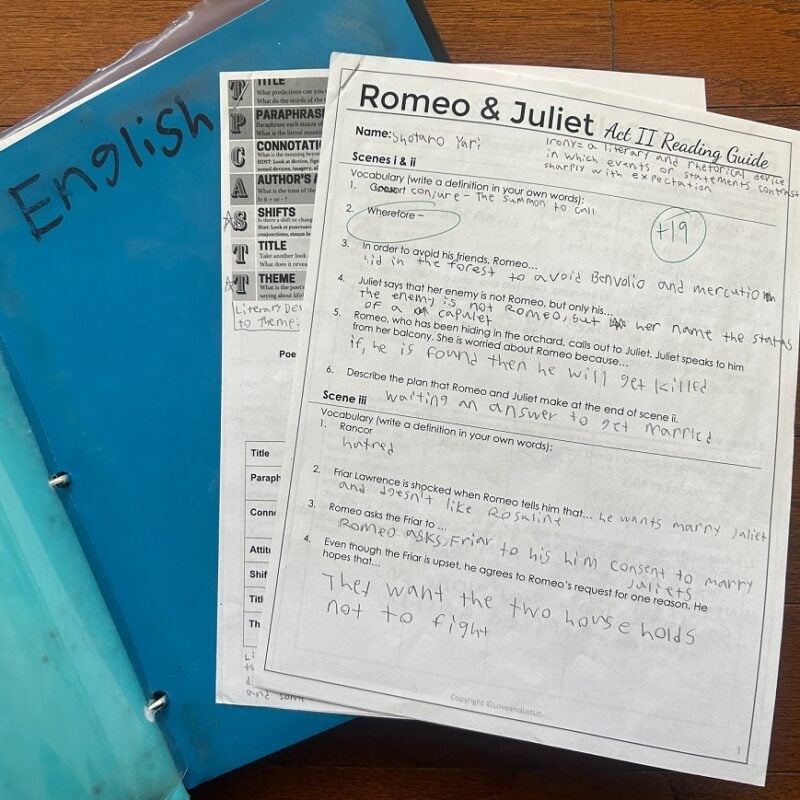 English
TITLE
What predictions can you
What do the words of the
PARAPHRAS
Paraphrase each stanza o
What is the literal meani
CONNOTATI
What is the meaning beyon
HINT: Look at diction, figura
sound devices, imagery, al
AUTHOR'S A
What is the tone of the
Is it + or - ?
SHIFTS
Is there a shift or chang
Hint: Look at punctuati
conjunctions, stanza le
TITLE
Take another look
What does it revea
THEME
What is the poet's
saying about life
Literary Dev
to theme:
Poe
Title
Paraph
Conn
Attitu
Shif
Titl
Th
and som
Romeo & Juliet Act II Reading Guide
Name: Shotaro Yari
Irony= a literary and rhetorical device
in which events or statements contrast
sharply with expectation
Scenes i & ii
Vocabulary (write a definition in your own words):
1. conjure - The summon to call
2. Wherefore -
+19
3. In order to avoid his friends, Romeo...
hid in the forest to avoid Benvolio and mercution
4. Juliet says that her enemy is not Romeo, but only his...
the enemy is not Romeo, but her name the status
of a capulet
5. Romeo, who has been hiding in the orchard, calls out to Juliet. Juliet speaks to him
from her balcony. She is worried about Romeo because...
if, he is found then he will get killed
6. Describe the plan that Romeo and Juliet make at the end of scene ii.
waiting an answer to get married
Scene iii
Vocabulary (write a definition in your own words):
1. Rancor
hatred
2. Friar Lawrence is shocked when Romeo tells him that... he wants marry Juliet
and doesn't like Rosaline
3. Romeo asks the Friar to ...
Romeo asks, Friar to his him consent to marry
juliets
4. Even though the Friar is upset, he agrees to Romeo's request for one reason. He
hopes that...
They want the two households
not to fight
Copyright ©LoveandLetLit
1